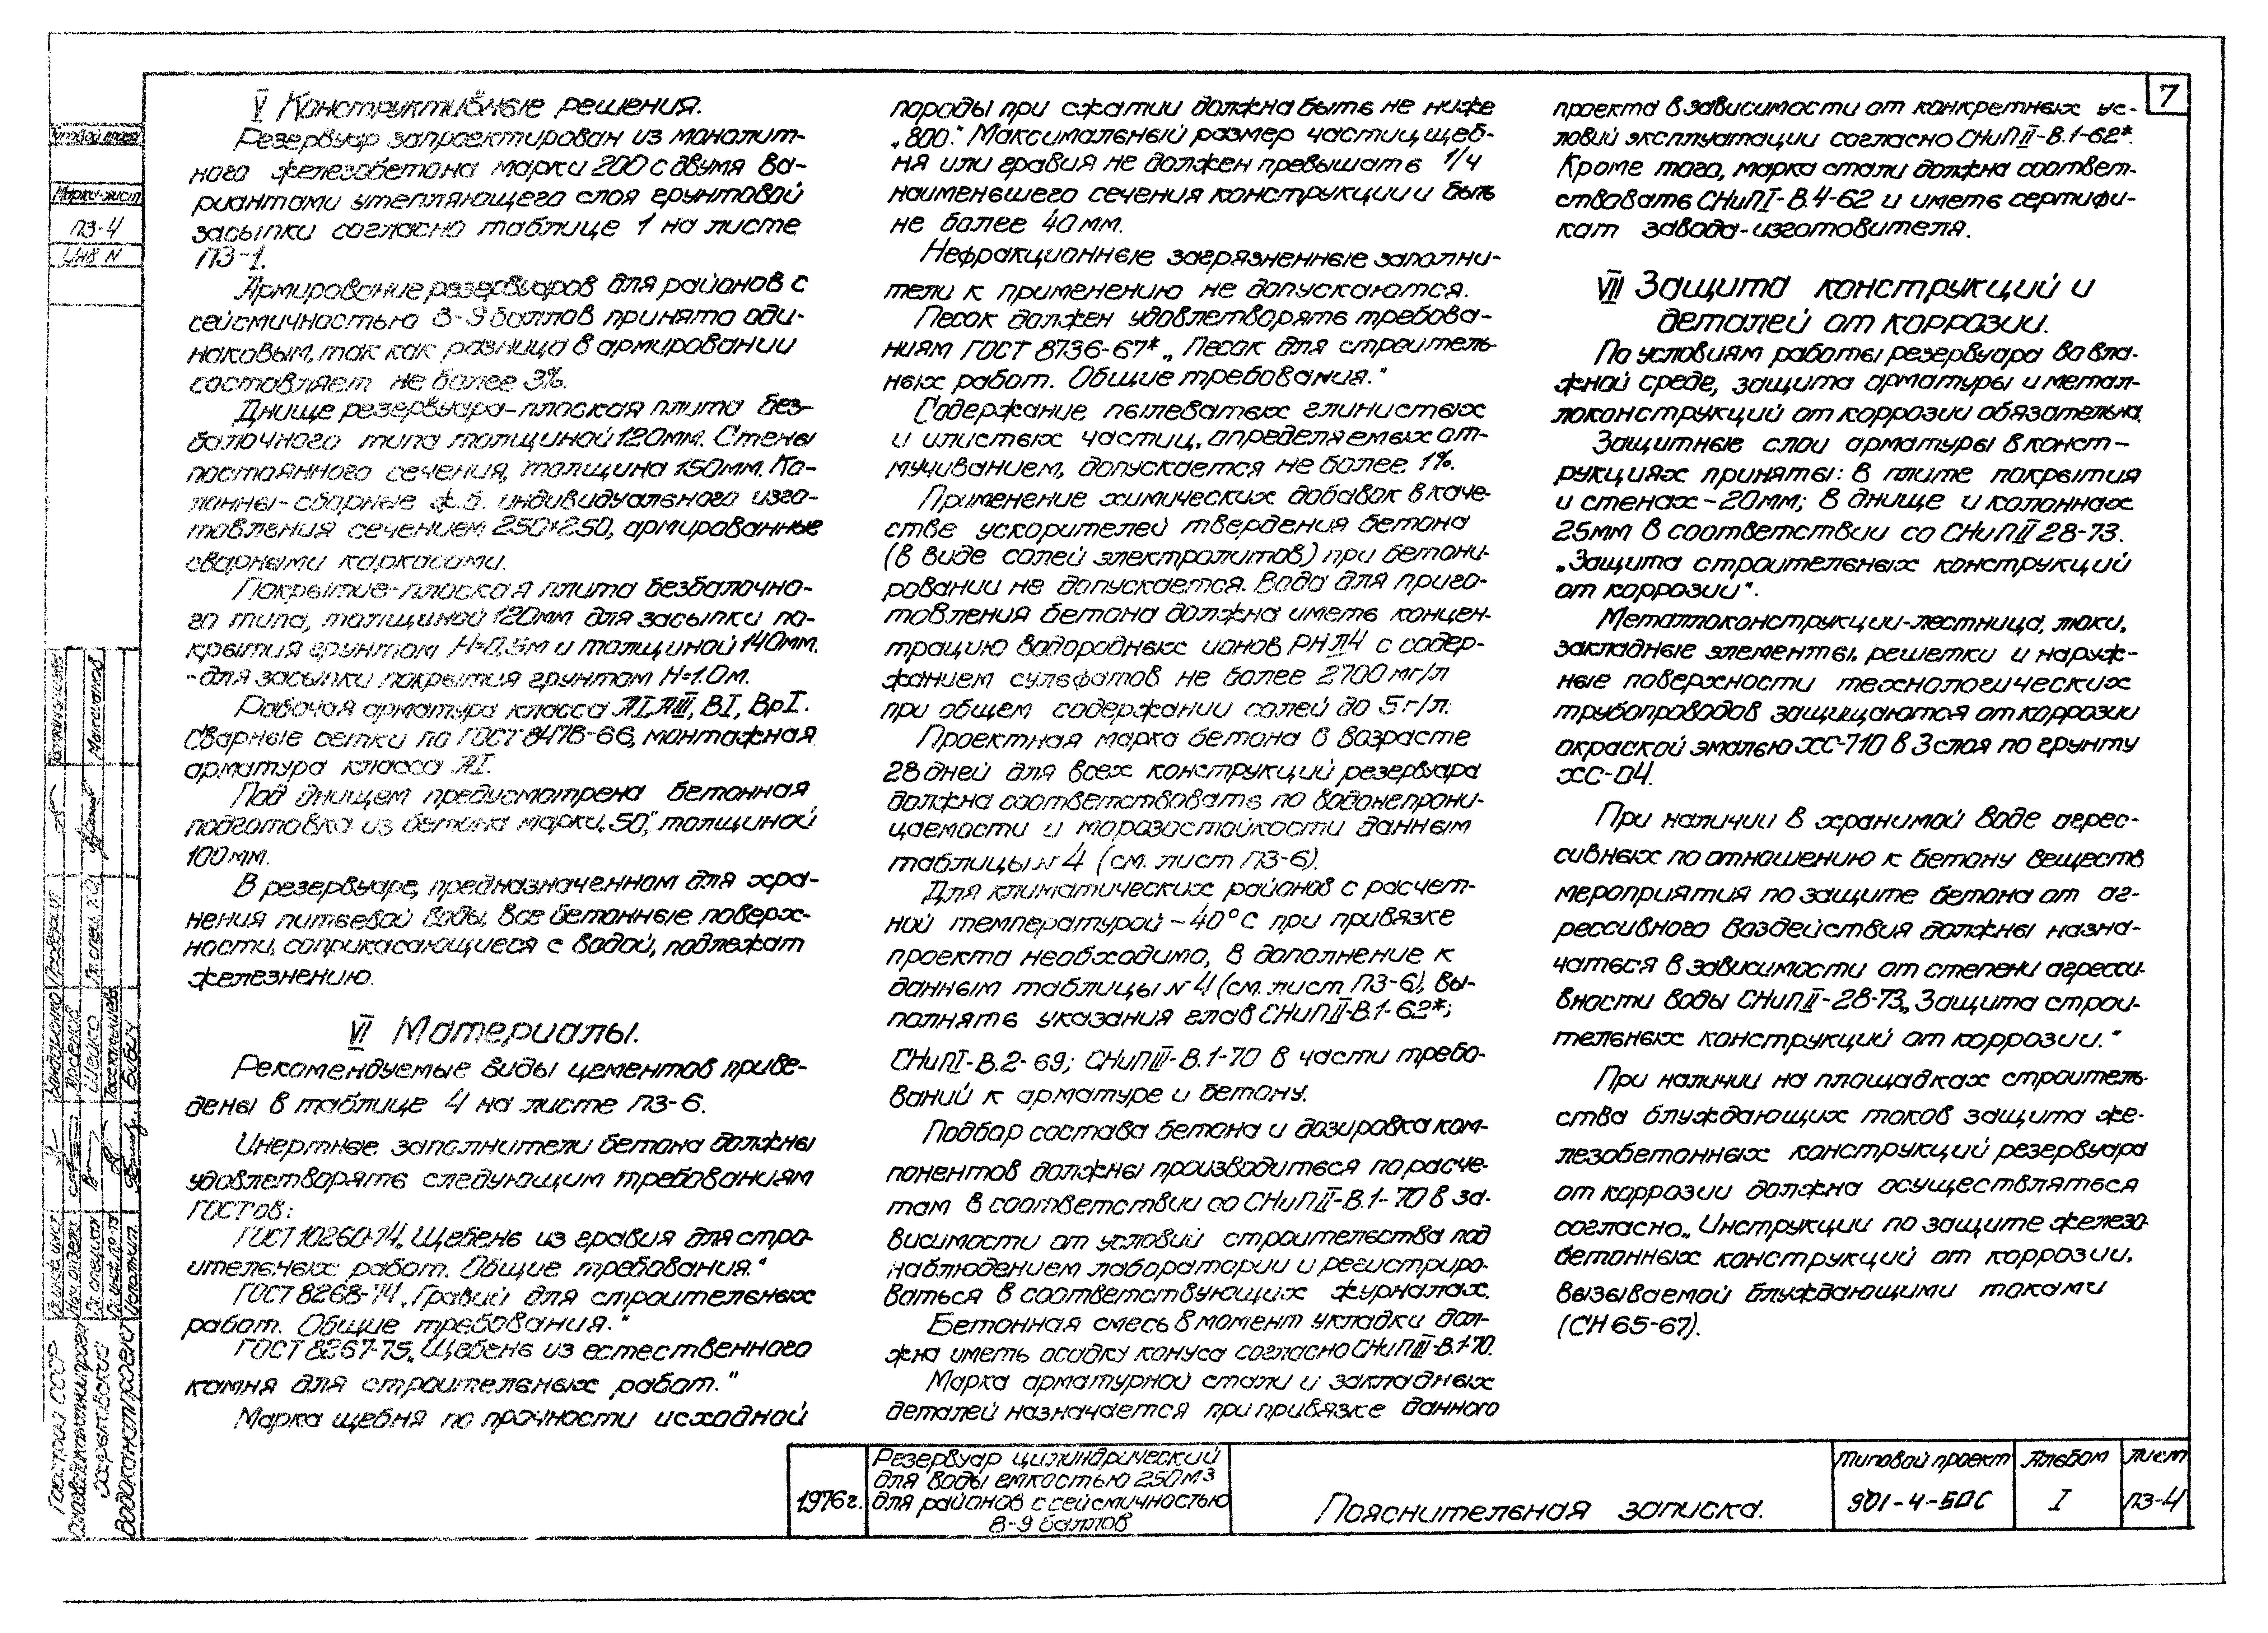 7
V Конструктивные решения.
Резервуар запроектирован из монолит-
ного железобетона марки 200 с двумя ва-
риантами утепляющего слоя грунтовой
засыпки согласно таблице 1 на листе
ПЗ-1.
Армирование резервуаров для районов с
сейсмичностью 8-9 баллов принято оди-
наковым, так как разница в армировании
составляет не более 3%.
Днище резервуара-плоская плита без-
балочного типа толщиной 120мм. Стены
постоянного сечения, толщина 150мм. Ко-
лонны-сборные ж.б. индивидуального изго-
товления сечением 250×250, армированные
сварными каркасами.
Покрытие-плоская плита безбалочно-
го типа, толщиной 120мм для засыпки по-
крытия грунтом Н=0.5м и толщиной 140мм.
-для засыпки покрытия грунтом Н=1.0м.
Рабочая арматура класса АI, АIII, ВI, ВрI.
Сварные сетки по ГОСТ 8478-66, монтажная
арматура класса АI.
Под днищем предусмотрена бетонная
подготовка из бетона марки „50", толщиной
100мм.
В резервуаре, предназначенном для хра-
нения питьевой воды, все бетонные поверх-
ности, соприкасающиеся с водой, подлежат
железнению.
VI Материалы.
Рекомендуемые виды цементов приве-
дены в таблице 4 на листе ПЗ-6.
Инертные заполнители бетона должны
удовлетворять следующим требованиям
ГОСТов:
ГОСТ 10260-74 „Щебень из гравия для стро-
ительных работ. Общие требования."
ГОСТ 8268-74 „Гравий для строительных
работ. Общие требования."
ГОСТ 8267-75 „Щебень из естественного
камня для строительных работ."
Марка щебня по прочности исходной
породы при сжатии должна быть не ниже
„800". Максимальный размер частиц щеб-
ня или гравия не должен превышать 1/4
наименьшего сечения конструкции и быть
не более 40мм.
Нефракционные загрязненные заполни-
тели к применению не допускаются.
Песок должен удовлетворять требова-
ниям ГОСТ 8736-67* „Песок для строитель-
ных работ. Общие требования."
Содержание пылеватых глинистых
и илистых частиц, определяемых от-
мучиванием, допускается не более 1%.
Применение химических добавок в каче-
стве ускорителей твердения бетона
(в виде солей электролитов) при бетони-
ровании не допускается. Вода для приго-
товления бетона должна иметь концен-
трацию водородных ионов РН Л4 с содер-
жанием сульфатов не более 2700 мг/л
при общем содержании солей до 5г/л.
Проектная марка бетона в возрасте
28 дней для всех конструкций резервуара
должна соответствовать по водонепрони-
цаемости и морозостойкости данным
таблицы №4 (см. лист ПЗ-6).
Для климатических районов с расчет-
ной температурой -40°С при привязке
проекта необходимо, в дополнение к
данным таблицы №4 (см. лист ПЗ-6), вы-
полнять указания глав СНиП II-В.1-62*;
СНиП I-В.2-69; СНиП III-В.1-70 в части требо-
ваний к арматуре и бетону.
Подбор состава бетона и дозировка ком-
понентов должны производиться по расче-
там в соответствии со СНиП II-В.1-70 в за-
висимости от условий строительства под
наблюдением лаборатории и регистриро-
ваться в соответствующих журналах.
Бетонная смесь в момент укладки дол-
жна иметь осадку конуса согласно СНиП III-В.1-70.
Марка арматурной стали и закладных
деталей назначается при привязке данного
проекта в зависимости от конкретных ус-
ловий эксплуатации согласно СНиП II-В.1-62*.
Кроме того, марка стали должна соответ-
ствовать СНиП I-В.4-62 и иметь сертифи-
кат завода-изготовителя.
VII Защита конструкций и
деталей от коррозии.
По условиям работы резервуара во вла-
жной среде, защита арматуры и метал-
локонструкций от коррозии обязательна.
Защитные слои арматуры в конст-
рукциях приняты: в плите покрытия
и стенах-20мм; в днище и колоннах
25мм в соответствии со СНиП II 28-73.
„Защита строительных конструкций
от коррозии".
Металлоконструкции-лестница, люки,
закладные элементы, решетки и наруж-
ные поверхности технологических
трубопроводов защищаются от коррозии
окраской эмалью ХС-710 в 3 слоя по грунту
ХС-04.
При наличии в хранимой воде агрес-
сивных по отношению к бетону веществ
мероприятия по защите бетона от аг-
рессивного воздействия должны назна-
чаться в зависимости от степени агресси-
вности воды СНиП II-28-73 „Защита строи-
тельных конструкций от коррозии."
При наличии на площадках строитель-
ства блуждающих токов защита же-
лезобетонных конструкций резервуара
от коррозии должна осуществляться
согласно „Инструкции по защите железо-
бетонных конструкций от коррозии,
вызываемой блуждающими токами
(СН 65-67).
1976г.
Резервуар цилиндрический
для воды емкостью 250м3
для районов с сейсмичностью
8-9 баллов
Пояснительная записка.
Типовой проект
901-4-50С
Альбом
I
Лист
ПЗ-4
Типовой проект
Марка-лист
ПЗ-4
Инв N
Госстрой СССР
Водоканалпроект
Нач. отдела
Исполнит.
Шейко
Бибич